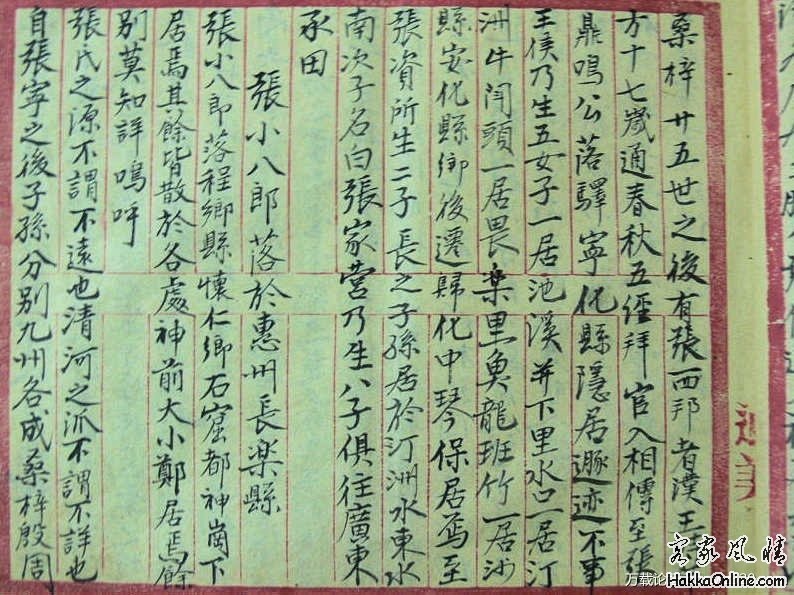 桑梓廿五世之後有張西邦者漢王
方十七歲通春秋五經拜官入相傳至張
鼎鳴公落驛寧化縣隱居遯迹不事
王侯乃生五女子一居池溪并下里水口一居汀
洲牛閂頭一居畏業里魚龍班竹一居沙
縣安化縣鄉後遷歸化中琴保居焉至
張資所生二子長之子孫居於汀洲水東水
南次子名白張家營乃生八子俱往廣東
承田
張小八郎落於惠州長楽縣
張小八郎落程鄉縣懷仁鄉石窟都神崗下
居焉其餘皆散於各處神前大小鄭居焉餘
別莫知詳嗚呼
張氏之源不謂不遠也清河之派不謂不詳也
自張寧之後子孫分別九州各成桑梓殷周
客家風情
HakkaOnline.com
万载论